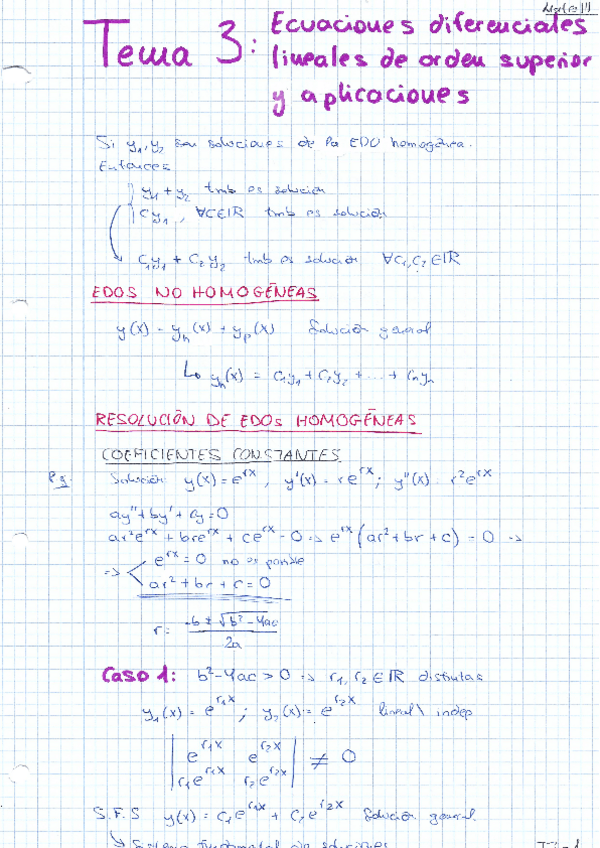 Tema 3: Ecuaciones diferenciales
lineales de orden superior
y aplicaciones
Si y₁, y₂ son soluciones de la EDO homogénea.
Entonces
y₁ + y₂ tmb es solución
Cy₁, ∀C∈IR tmb es solución
C₁y₁ + C₂y₂ tmb es solución ∀C₁,C₂∈IR
EDOS NO HOMOGÉNEAS
y(x) = yₕ(x) + yₚ(x) Solución general
↳ yₕ(x) = C₁y₁ + C₂y₂ + ... + Cₙyₙ
RESOLUCIÓN DE EDOs HOMOGÉNEAS
COEFICIENTES CONSTANTES
Solución y(x) = e^{rx}, y'(x) = re^{rx}; y''(x) = r²e^{rx}
ay'' + by' + cy = 0
ar²e^{rx} + bre^{rx} + ce^{rx} = 0 => e^{rx}(ar² + br + c) = 0 =>
=> e^{rx} = 0 no es posible
ar² + br + c = 0
r: -b ± √(b² - 4ac)
2a
Caso 1: b² - 4ac > 0 => r₁, r₂ ∈ IR distintas
y₁(x) = e^{r₁x}; y₂(x) = e^{r₂x} lineal\ indep
| e^{r₁x} e^{r₂x} |
| r₁e^{r₁x} r₂e^{r₂x} | ≠ 0
S.F.S y(x) = C₁e^{r₁x} + C₂e^{r₂x} Solución general
↳ Sistema fundamental de soluciones